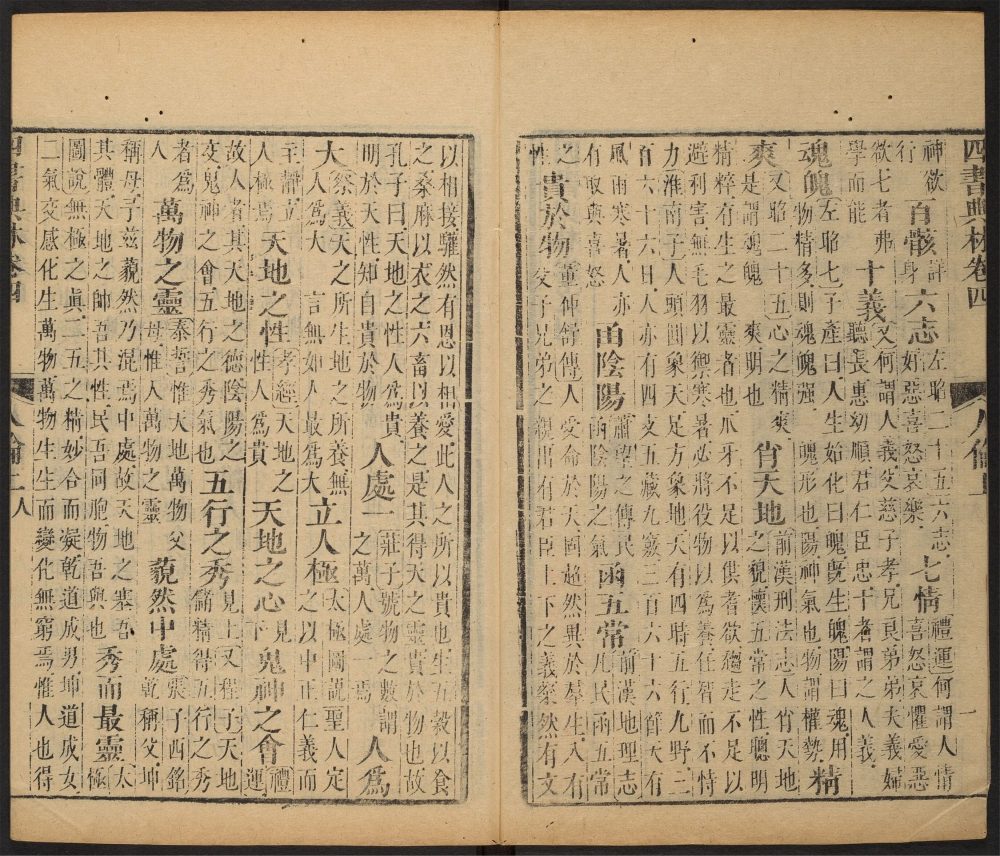 四書典林卷四 人倫上 一
神欲
行
百骸
詳
身
六志
左昭二十五六志
好惡喜怒哀樂
七情
禮運何謂人情
喜怒哀懼愛惡
欲七者弗
學而能
十義
又何謂人義父慈子孝兄良弟弟夫義婦
聽長惠幼順君仁臣忠十者謂之人義
魂魄
左昭七子產曰人生始化曰魄旣生魄陽曰魂用
物精多則魂魄强 魄形也陽神氣也物謂權勢
精
爽
又昭二十五心之精爽
是謂魂魄 爽明也
肖天地
前漢刑法志人肖天地
之貌懷五常之性聰明
精粹有生之最靈者也爪牙不足以供耆欲趨走不足以
避利害無毛羽以禦寒暑必將役物以爲養任智而不恃
力淮南子人頭圓象天足方象地天有四時五行九野三
百六十六日人亦有四支五藏九竅三百六十六節天有
風雨寒暑人亦
有取與喜怒
由陰陽
蕭望之傳民
函陰陽之氣
函五常
前漢地理志
凡民函五常
之
性
貴於物
董仲舒傳人受命於天固超然異於羣生入有
父子兄弟之親出有君臣上下之義粲然有文
以相接驩然有恩以相愛此人之所以貴也生五穀以食
之桑麻以衣之六畜以養之是其得天之靈貴於物也故
孔子曰天地之性人爲貴
明於天性知自貴於物
人處一
莊子號物之數謂
之萬人處一焉
人爲
大
祭義天之所生地之所養無
人爲大 言無如人最爲大
立人極
太極圖說聖人定
之以中正仁義而
主靜立
人極焉
天地之性
孝經天地之
性人爲貴
天地之心
見
下
鬼神之會
禮
運
故人者其天地之德陰陽之
交鬼神之會五行之秀氣也
五行之秀
見上又程子天地
儲精得五行之秀
者爲
人
萬物之靈
泰誓惟天地萬物父
母惟人萬物之靈
藐然中處
張子西銘
乾稱父坤
稱母予兹藐然乃混焉中處故天地之塞吾
其體天地之帥吾其性民吾同胞物吾與也
秀而最靈
太
極
圖說無極之眞二五之精妙合而凝乾道成男坤道成女
二氣交感化生萬物萬物生生而變化無窮焉惟人也得
四書典林卷四 人倫上 人